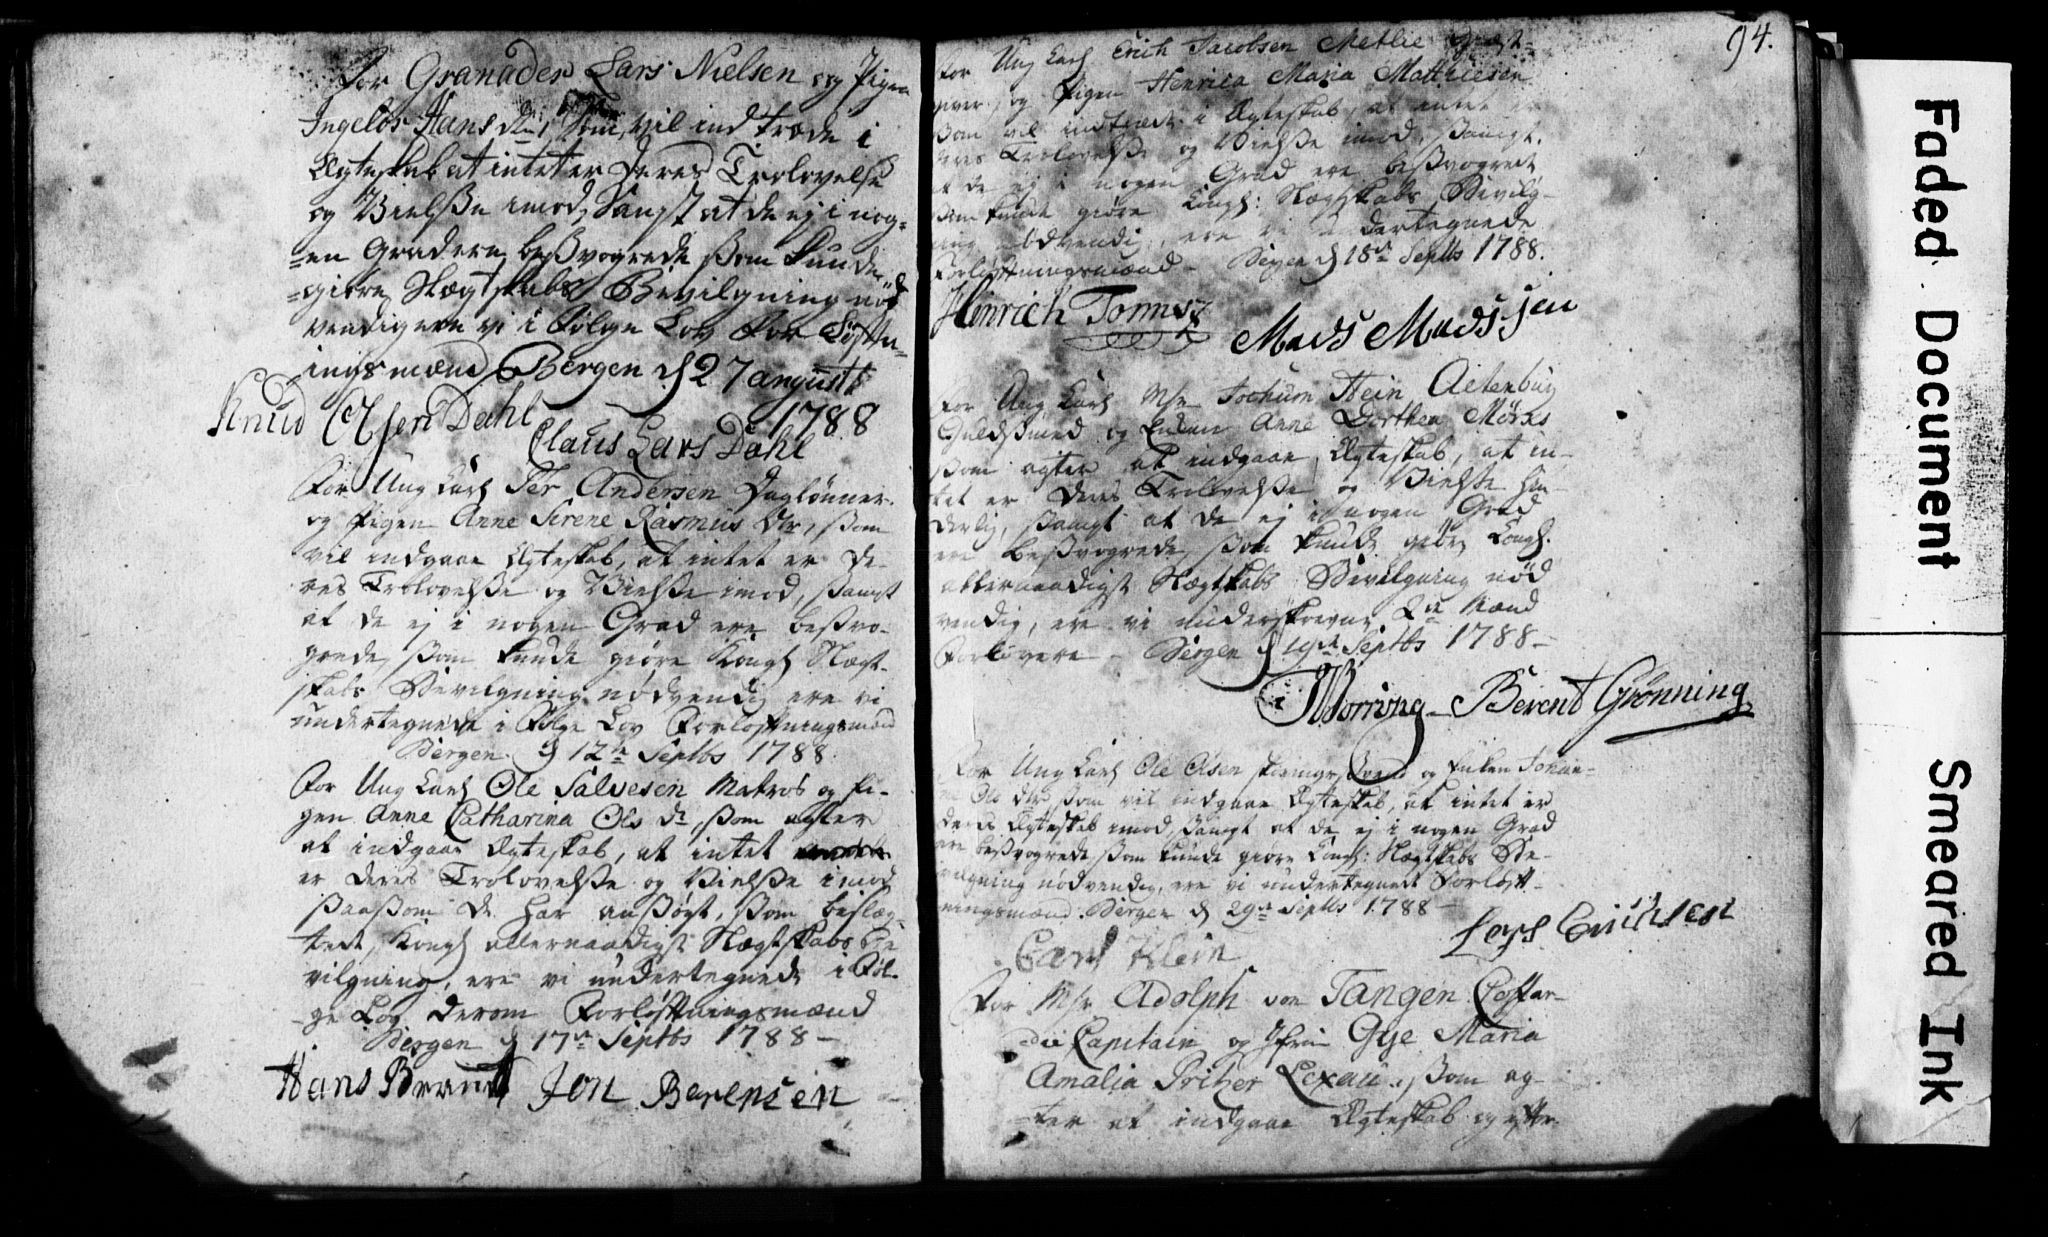 For Granadeer Lars Nielsen og Pigen
Ingebor Hans dr, som vil indtræde i
Ægteskab at intet er deres Trolovelse
og Vielsse imod, samst at de ej i nog-
-en Grad ere besvogrede ssom kunde
-giøre Slægtskabs Bevilgning nød
vendig ere vi i følge Lov Forløftn-
ingsmænd Bergen d 27 august
1788
Knud Olsen Dahl
Claus Lars Dahl
For Ung Karl Per Andersen Daglønner
og Pigen Anne Sirene Rasmus dr, ssom
vil indgaae Ægteskab, at intet er de-
res Trolovelsse og Vielsse imod, ssamt
at de ej i nogen Grad ere bessvo-
grede, ssom kunde giøre Kongl Slægt-
skabs Bevilgning nødvendig ere vi
undertegnede i Følge Lov Forløftningsmænd
Bergen d 12te Septbs 1788.
For Ung Karl Ole Salvesen Matros og Pi-
gen Anne Catharina Ols dr, ssom agter
at indgaae Ægteskab, at intet
er deres Trolovelsse og Vielsse imod
ssaassom de har anssøgt, ssom beslæg-
tede, Kongl allernaadigst Slægtskabs Be
vilgning, ere vi undertegnede i Føl-
-ge Lov derom Forløftningsmænd
Bergen d 17de Septbs 1788 -
Hans Brandt Jon Berensen
94.
For Ung Karl Erich Jacobsen Metlie Giæst-
giver, og Pigen Henrica Maria Matthiesen
ssom vil indtræde i Ægteskab, at intet er
deres Trolovelsse og Vielsse imod, ssamt
at de ej i nogen Grad ere bessvogrede
ssom kunde giøre Kongl: Slægtskabs Bevilg-
ning nødvendig, ere vi undertegnede
Forløftningsmænd - Bergen d 18de Septbs 1788.
Hinrich Tonnis
Mads Madssen
For Ung Karl Mr Jochum Hein Aetenbug
Guldssmed og Enken Anne Dorthea Mørks
ssom agter at indgaae Ægteskab, at in-
tet er deres Trolovelsse og Vielsse hin-
derlig, ssamt at de ej i nogen Grad
ere bessvogrede, ssom kunde giøre Kongl.
allernaadigst Slægtskabs Bevilgning nød
vendig, ere vi underskrevne 2de Mænd
Forlovere - Bergen d 19de Septbs 1788 -
Berent Grønning
For Ung Karl Ole Olsen og Enken Johan-
ne Ols dtr, ssom vil indgaae Ægteskab, at intet er
deres Ægteskab imod, ssamt at de ej i nogen Grad
ere bessvogrede ssom kunde giøre Kongl: Slægtskabs Be-
vilgning nødvendig, ere vi undertegnede Forløft-
ningsmænd. Bergen d 29de Septbs 1788 -
Carl Klein
Erichsen
For Mr Adolph von Tangen Coffar-
-die Capitain og Jfru Gese Maria
Amalia Pritzer Lexau, ssom ag-
-ter at indgaae Ægteskab og efter
Faded Document
Smeared Ink